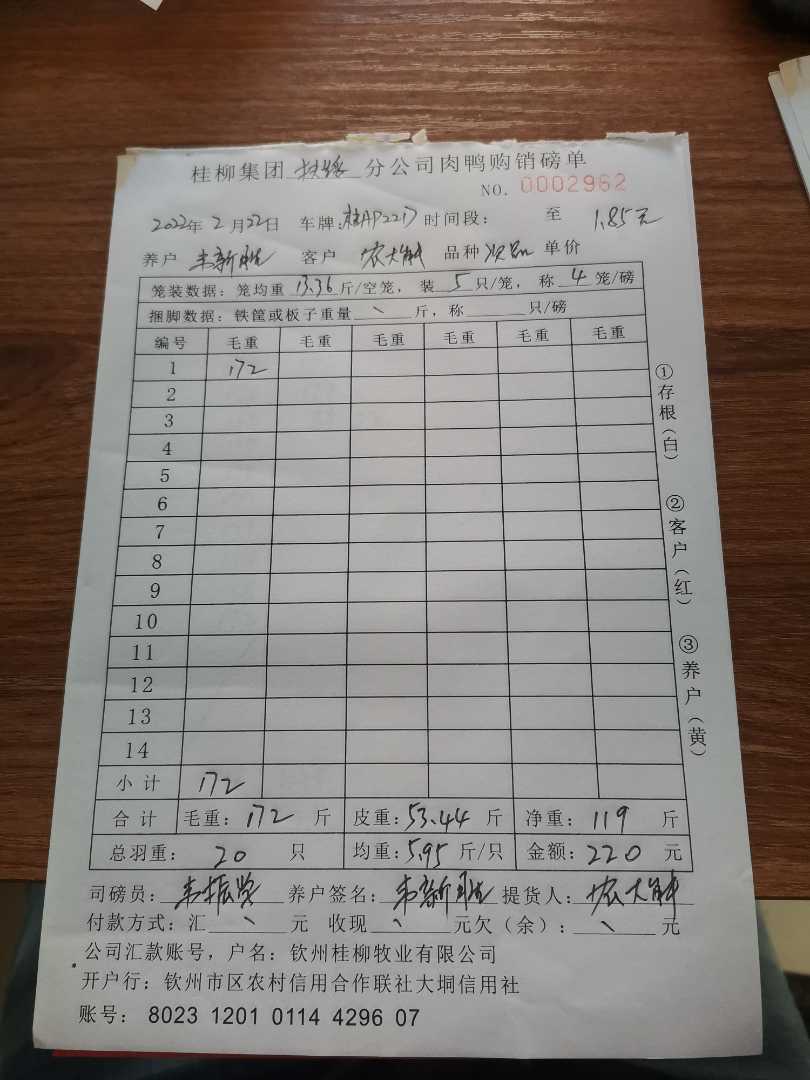 桂柳集团 扶绥 分公司肉鸭购销磅单
NO. 0002962
2022年 2月22日 车牌:桂AP2217 时间段: 至 1.85元
养户 韦新胜 客户 农大 品种 次品 单价
笼装数据: 笼均重 13.36 斤/空笼, 装 5 只/笼, 称 4 笼/磅
捆脚数据: 铁筐或板子重量 \ 斤, 称 只/磅
编号 毛重 毛重 毛重 毛重 毛重 毛重
1 172
2
3
4
5
6
7
8
9
10
11
12
13
14
小计 172
合计 毛重: 172 斤 皮重: 53.44 斤 净重: 119 斤
总羽重: 20 只 均重: 5.95 斤/只 金额: 220 元
司磅员: 韦振 养户签名: 韦新胜 提货人: 农大
付款方式: 汇 \ 元 收现 \ 元欠(余): \ 元
公司汇款账号, 户名: 钦州桂柳牧业有限公司
开户行: 钦州市区农村信用合作联社大垌信用社
账号: 8023 1201 0114 4296 07
①存根(白)
②客户(红)
③养户(黄)